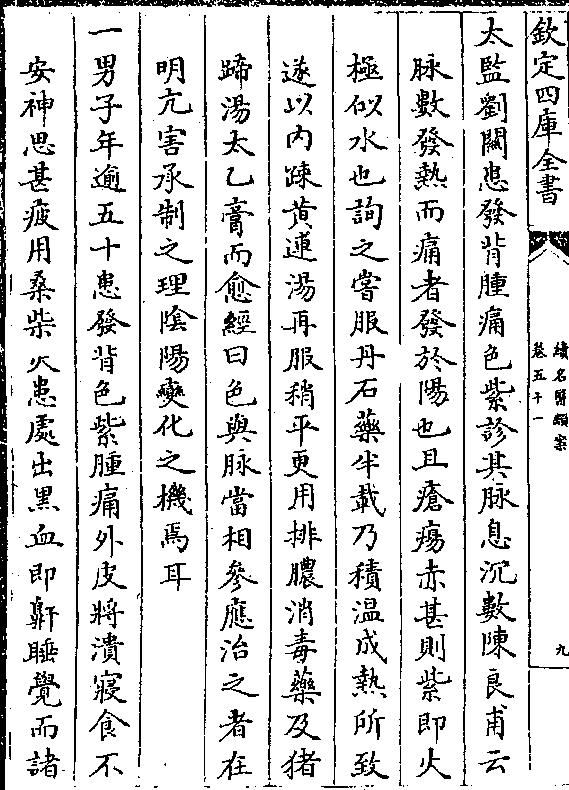 欽定四庫全書
續名醫類案
卷五十一
九
太監劉關患發背腫痛色紫診其脉息沉數陳良甫云
脉數發熱而痛者發於陽也且瘡瘍赤甚則紫即火
極似水也詢之嘗服丹石藥半載乃積温成熱所致
遂以内踈黄連湯再服稍平更用排膿消毒藥及猪
蹄湯太乙膏而愈經曰色與脉當相參應治之者在
明亢害承制之理陰陽變化之機焉耳
一男子年逾五十患發背色紫腫痛外皮將潰寢食不
安神思甚疲用桑柴火患處出黑血即鼾睡覺而諸